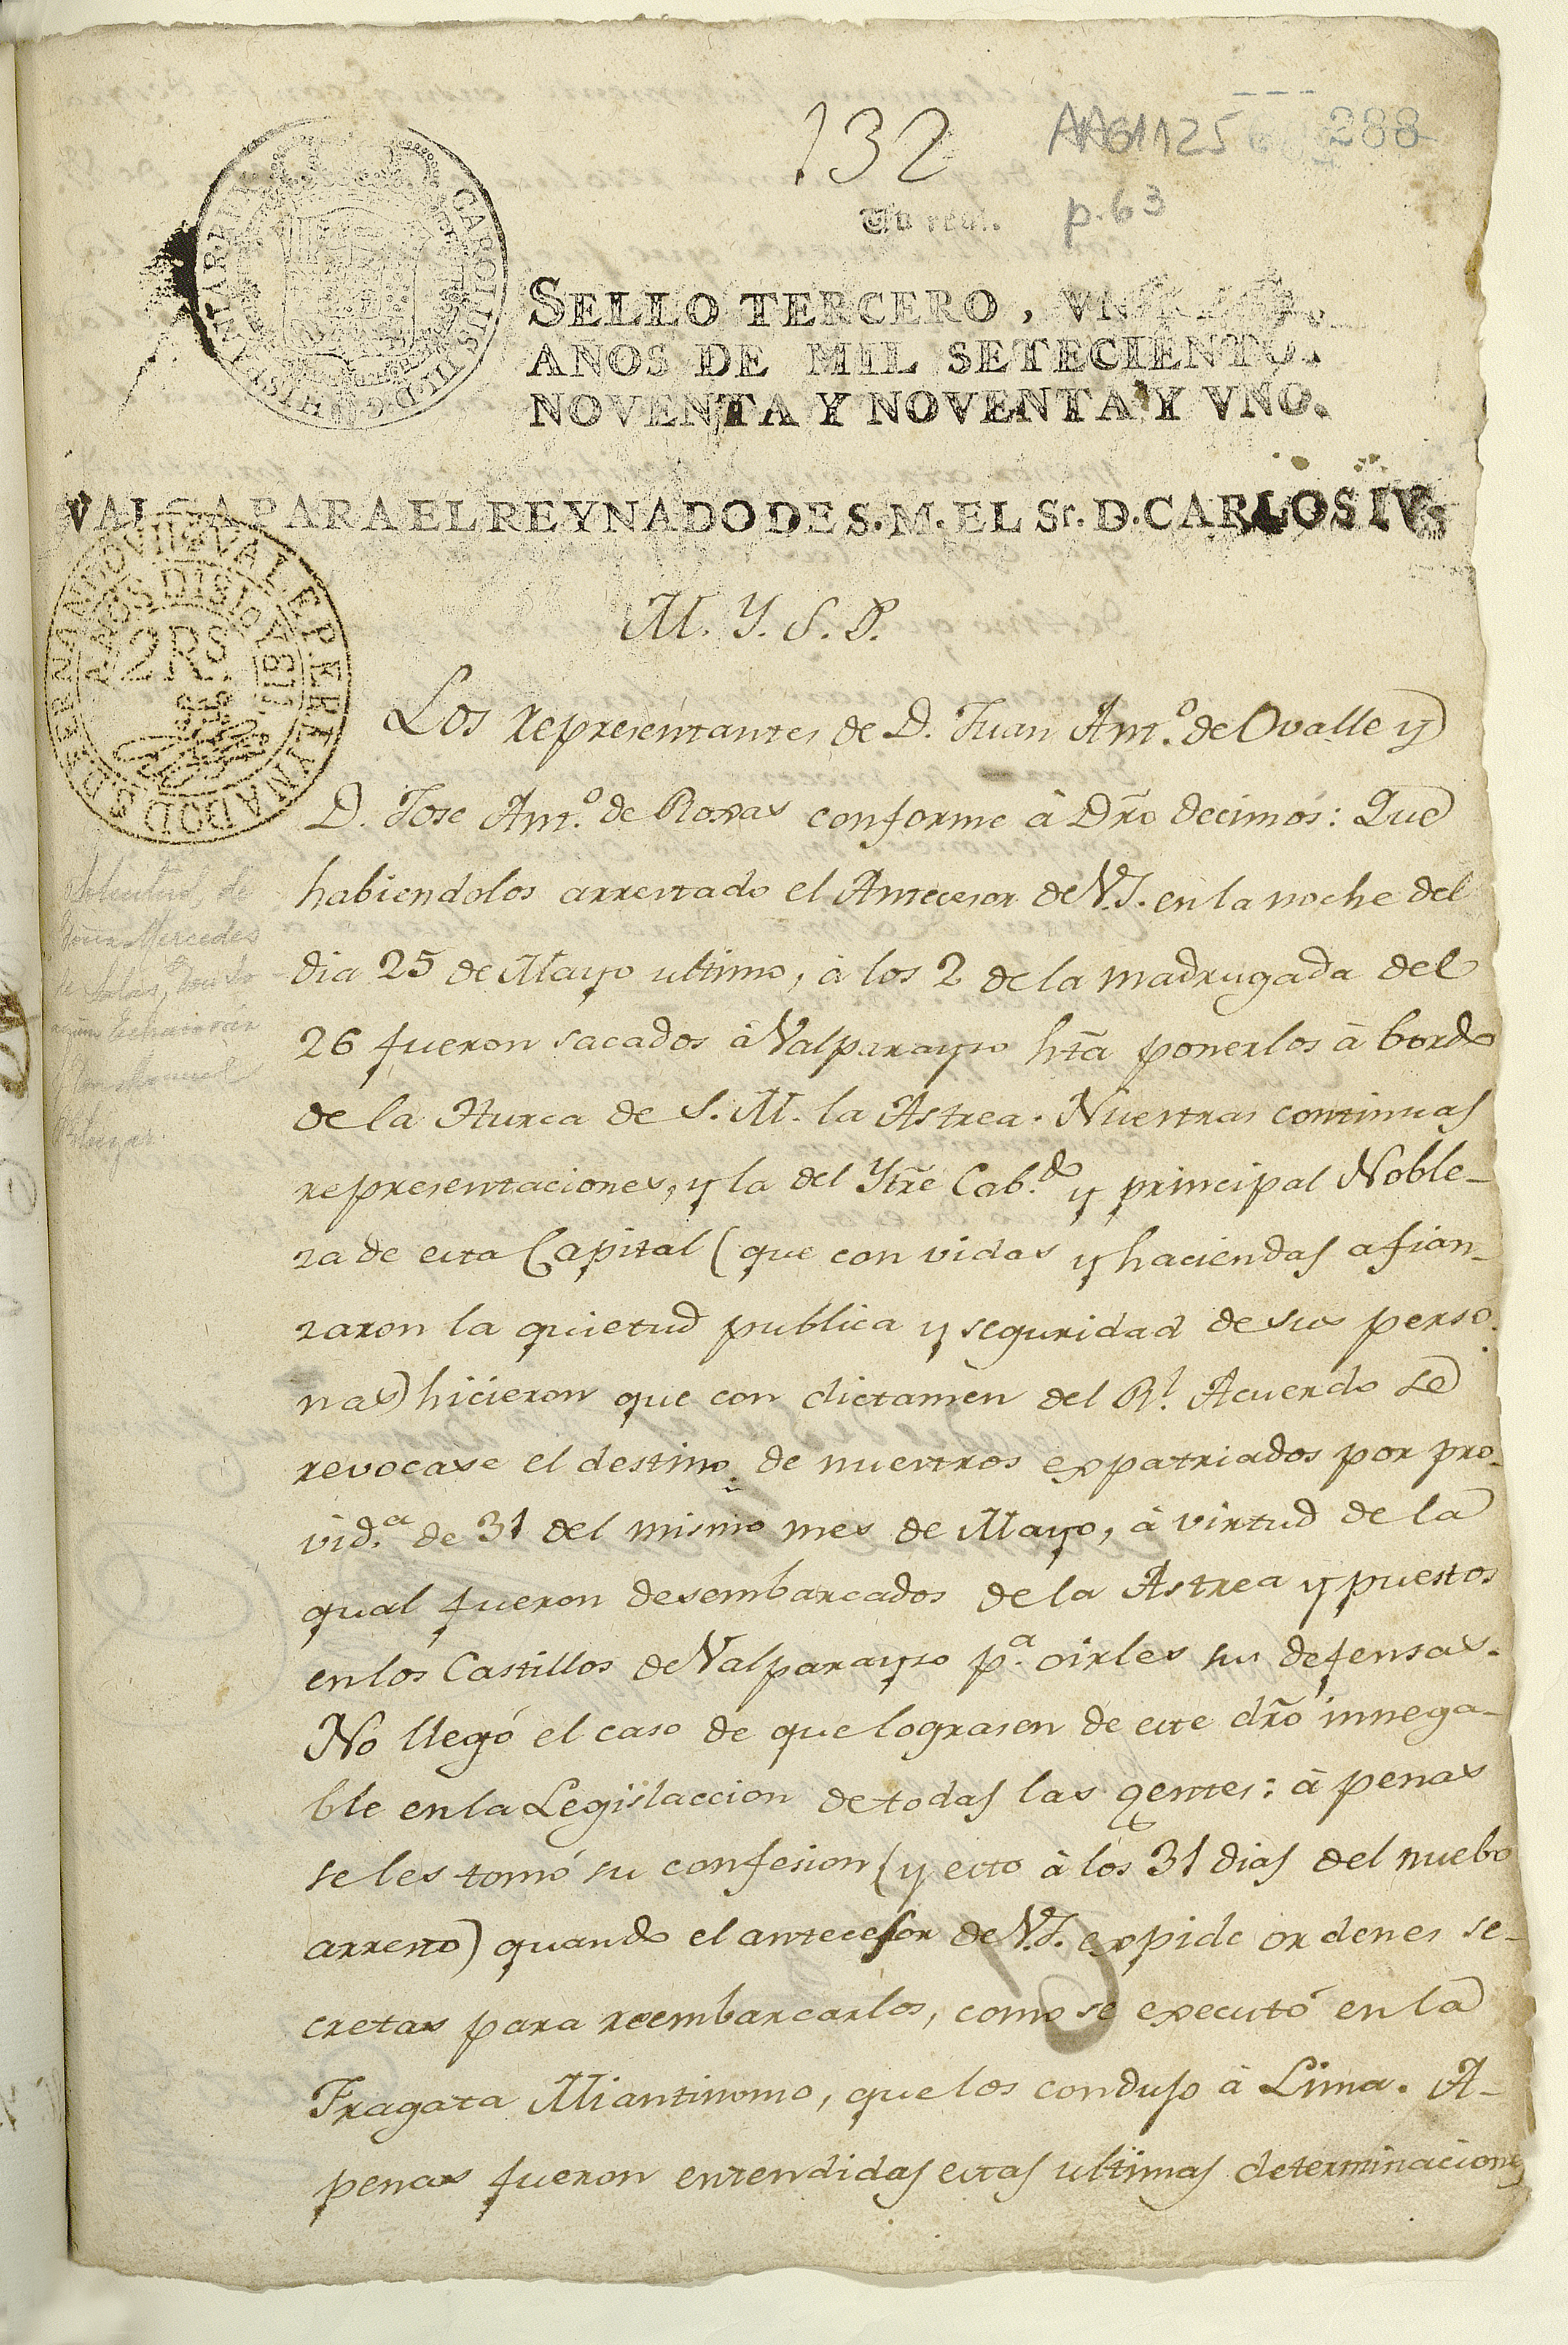 132
AAG1125
288
p. 63
Un real.
SELLO TERCERO, VN
AÑOS DE MIL SETECIENTO.
NOVENTA Y NOVENTA Y VNO.
VALGA PARA EL REYNADO DE S.M. EL Sr. D. CARLOS IV.
CAROLUS III D.G. HISPANIAR REX
VALE PER EL YNADO D S D FERNANDO VII
AÑOS DISIO
2Rs.
M. Y. S. P.
Los representantes de D. Juan Ant.º de Ovalle y
D. Jose Ant.º de Roxas conforme â Dr̃o decimos: Que
habiendolos arrestado el Antecesor de V.S. en la noche del
dia 25 de Mayo ultimo, â los 2 de la madrugada del
26 fueron sacados â Valparayso ht̃a ponerlos â bordo
de la Hurca de S. M. la Astrea. Nuestras continuas
representaciones, y la del Yltr̃e Cab.do y principal Noble-
za de esta Capital (que con vidas y haciendas afian-
zaron la quietud publica y seguridad de sus perso-
nas) hicieron que con dictamen del Rl. Acuerdo se
revocase el destino de nuestros expatriados por pro-
vid.a de 31 del mismo mes de Mayo, â virtud de la
qual fueron desembarcados de la Astrea y puestos
en los Castillos de Valparayso p.a oirles sus defensas.
No llegó el caso de que lograsen de este dr̃o innega-
ble en la Legislaccion de todas las gentes: â penas
se les tomó su confesion (y esto â los 31 dias del nuebo
arresto) quando el antecesor de V.S. expide ordenes se-
cretas para reembarcarlos, como se executó en la
Fragata Miantinomo, que los condujo â Lima. A-
penas fueron entendidas estas ultimas determinaciones
Solicitud de
Doña Mercedes
de Salas, Don Jo
aquin Echavarria
y Don Manuel